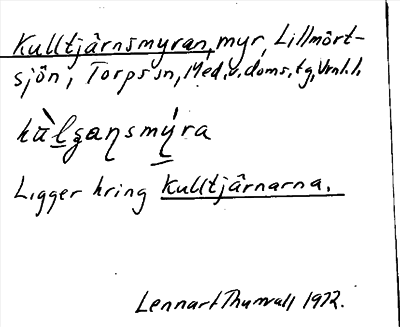 Kulltjärnsmyran, myr, Lillmört-
sjön, Torps sn, Med.v.doms.tg, Vrnl.l.
Ligger kring Kulltjärnarna.
Lennart Thunvall 1972.